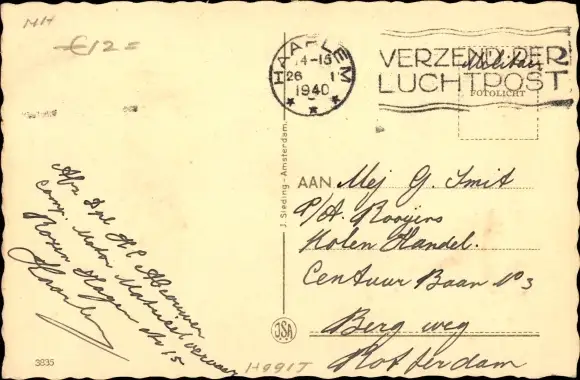 HH
€12=
HAARLEM
14-15
26 I
1940
VERZENDT PER
LUCHTPOST
Militair
FOTOLICHT
J. Sleding - Amsterdam.
AAN Mej G. Smit
P/A. Rooijens
Kolen Handel.
Centuur Baan No 3
Berg weg
Rotterdam
Afz. Dpl H C
Comp. Motor Materieel
Rozen Hagen No 15
Haarlem
JSA
3835